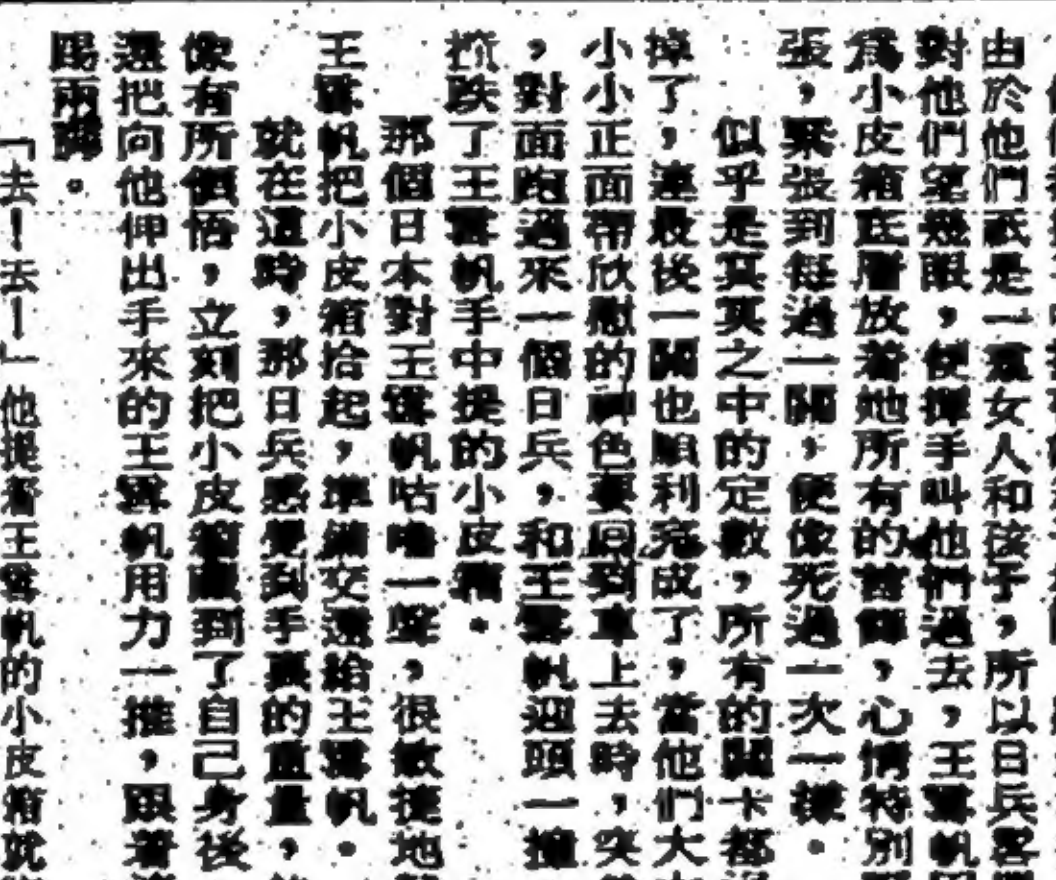 由於他們祇是一羣女人和孩子，所以日兵畧
對他們望幾眼，便揮手叫他們過去，王雲帆
爲小皮箱底層放着她所有的首飾，心情特別
張，緊張到每過一關，便像死過一次一樣。
似乎是冥冥之中的定數，所有的關卡都
掉了，連最後一關也順利完成了，當他們大
小小正面帶欣慰的神色要回到車上去時，突
，對面跑過來一個日兵，和王雲帆迎頭一撞
跌了王雲帆手中提的小皮箱。
那個日本對王雲帆咕嚕一聲，很敏捷地
王雲帆把小皮箱拾起，準備交還給王雲帆。
就在這時，那日兵感覺到手裏的重量，
像有所領悟，立刻把小皮箱藏到了自己身後
還把向他伸出手來的王雲帆用力一推，跟着
踢兩腳。
「去！去！」他提着王雲帆的小皮箱就